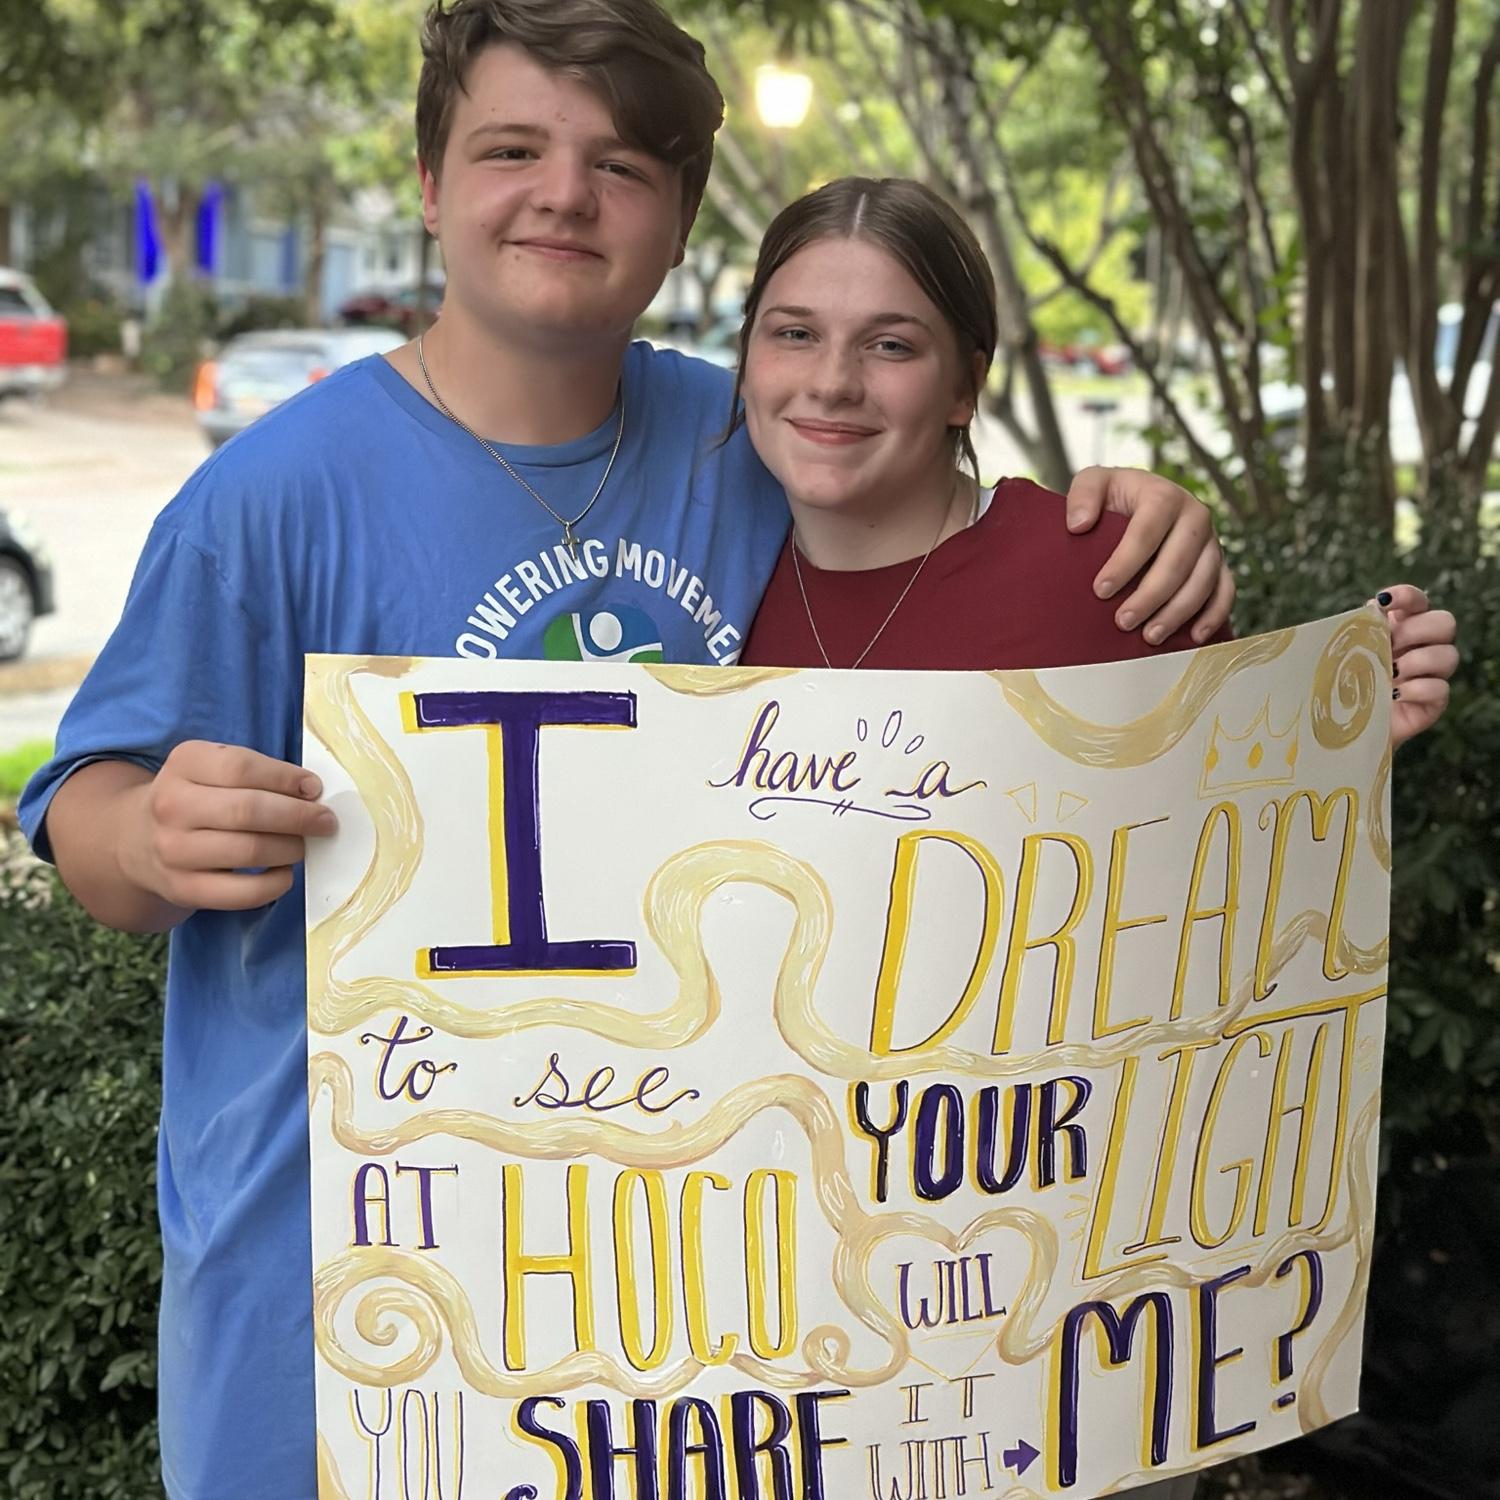 OWERING MOVEME
I have a DREAM
to see YOUR LIGHT
AT HOCO WILL
YOU SHARE IT WITH ME?